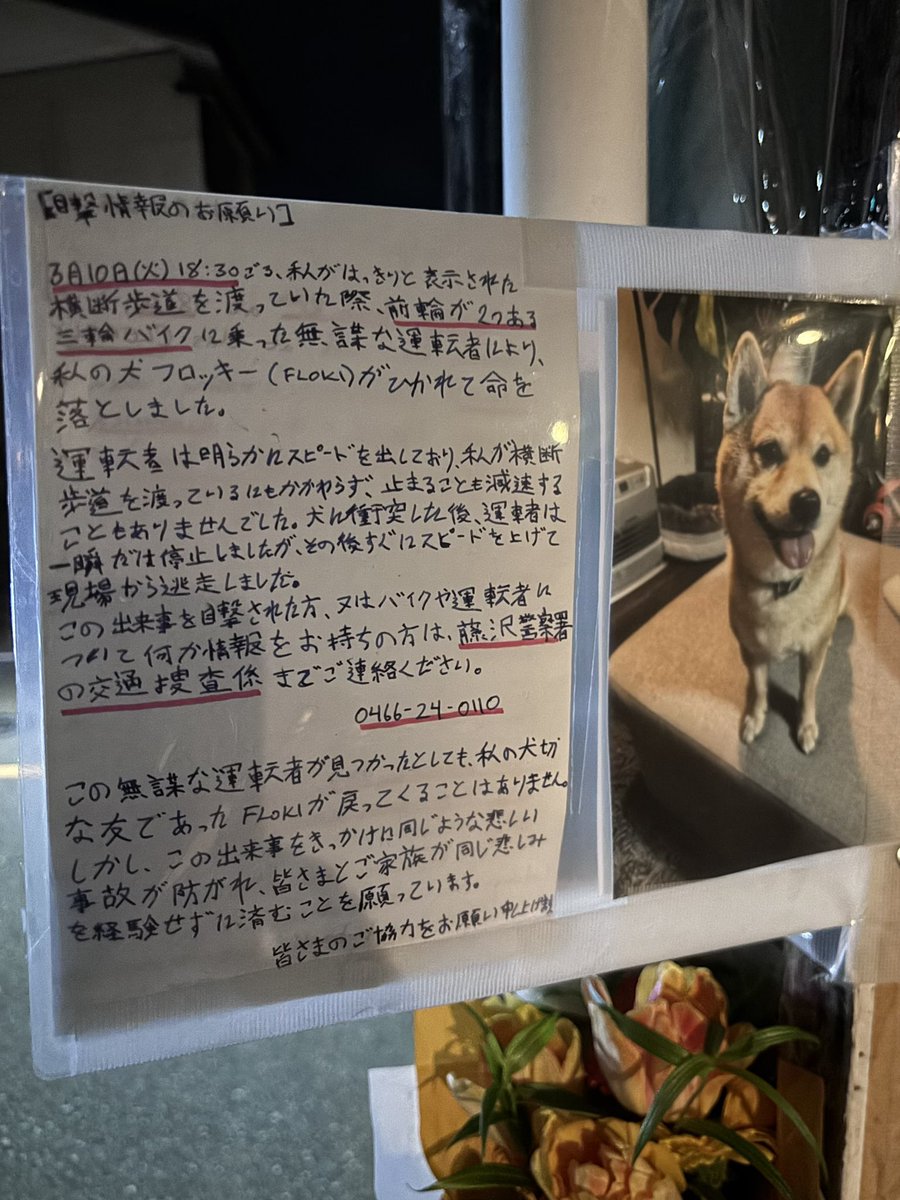 [目撃情報のお願い]
3月10日(火) 18:30ごろ、私がはっきりと表示された
横断歩道を渡っていた際、前輪が2つある
三輪バイクに乗った無謀な運転者により、
私の犬フロッキー(FLOKI)がひかれて命を
落としました。
運転者は明らかにスピードを出しており、私が横断
歩道を渡っているにもかかわらず、止まることも減速する
こともありませんでした。犬に衝突した後、運転者は
一瞬だけ停止しましたが、その後すぐにスピードを上げて
現場から逃走しました。
この出来事を目撃された方、又はバイクや運転者に
ついて何か情報をお持ちの方は、藤沢警察署
の交通捜査係までご連絡ください。
0466-24-0110
この無謀な運転者が見つかったとしても、私の大切
な友であったFLOKIが戻ってくることはありません。
しかし、この出来事をきっかけに同じような悲しい
事故が防がれ、皆さまとご家族が同じ悲しみ
を経験せずに済むことを願っています。
皆さまのご協力をお願い申し上げます